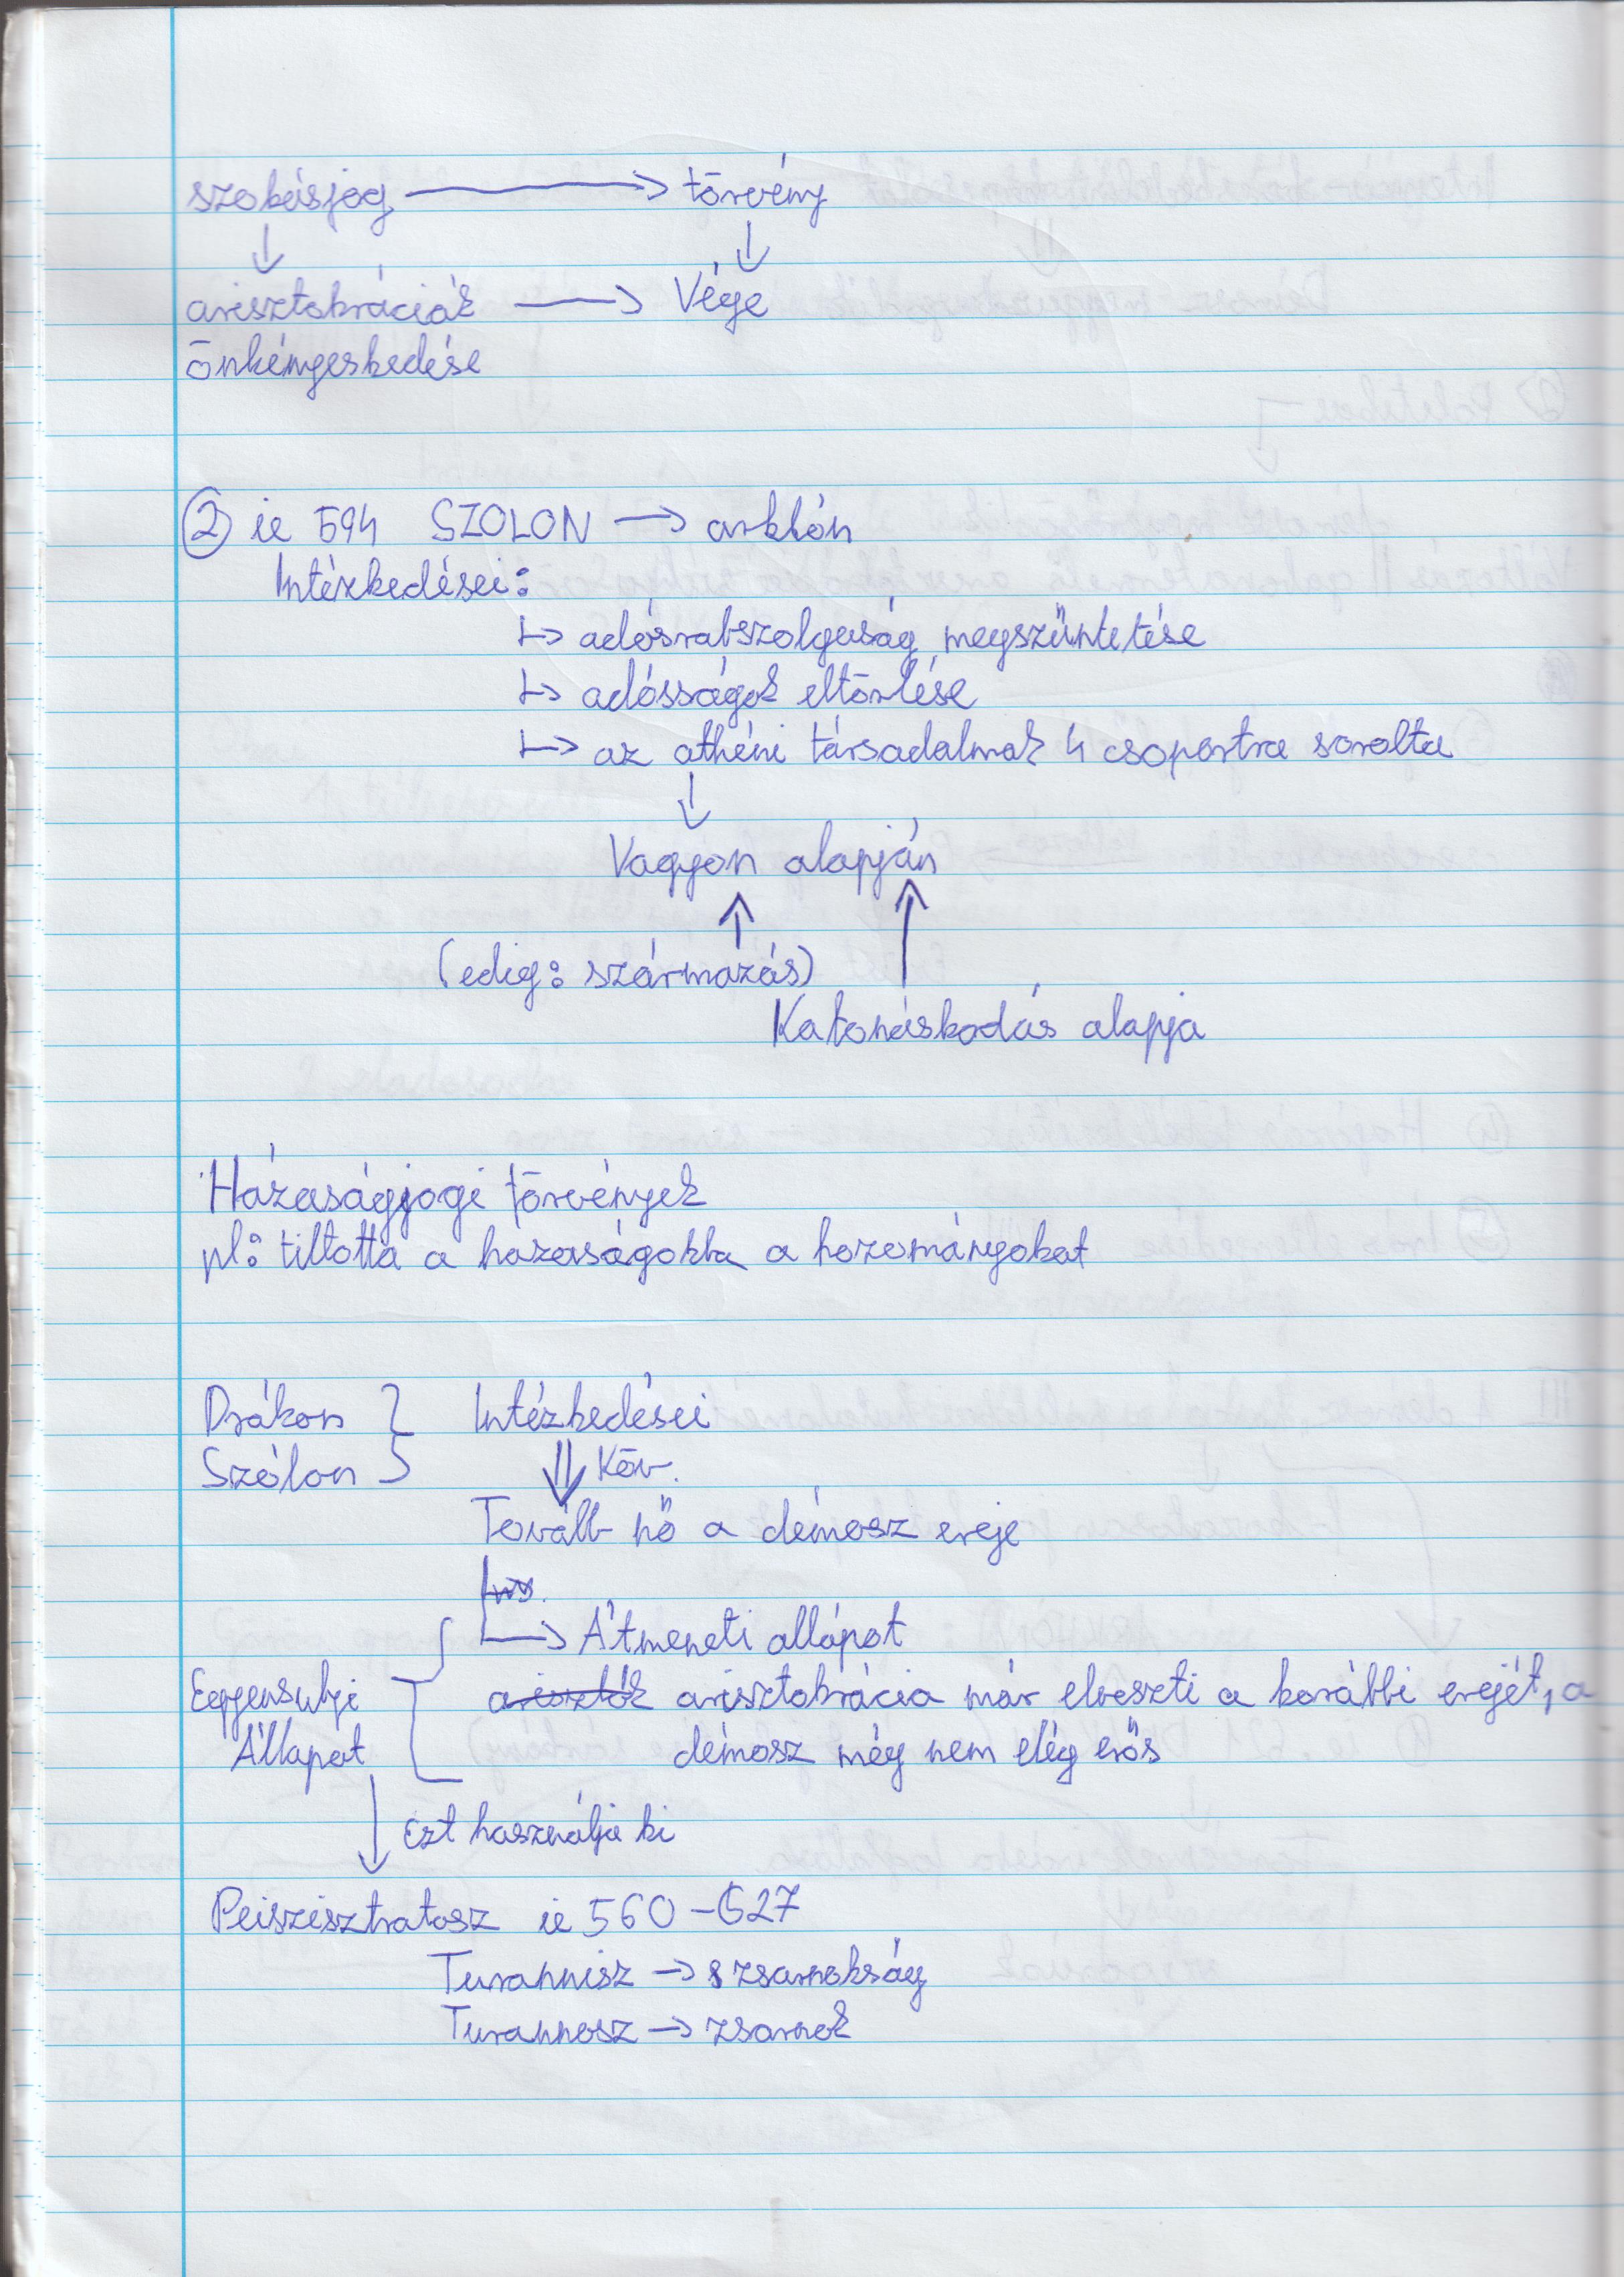 szokásjog → törvény
↓ ↓
arisztokráciák → Vége
önkényeskedése
② ie 594 SZOLON → arkhón
Intézkedései:
↳ adósrabszolgaság megszűntetése
↳ adósságok eltörlése
↳ az athéni társadalmat 4 csoportra sorolta
↓
Vagyon alapján
↑ ↑
(edig: származás)
Katonáskodás alapja
Házaságjogi törvények
pl: tiltotta a hazaságokba a hozományokat
Drákon } Intézkedései
Szólon ⇓ Köv.
Tovább nő a démosz ereje
→ Átmeneti allápot
Egyensulyi arisztokrácia már elveszti a korábbi erejét, a
Állapot démosz még nem elég erős
↓ Ezt használja ki
Peiszisztratosz ie 560-527
Turannisz → zsarnokság
Turannosz → zsarnok